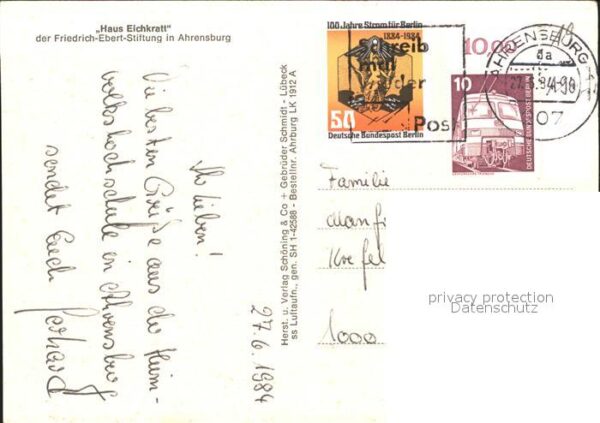 „Haus Eichkratt"
der Friedrich-Ebert-Stiftung in Ahrensburg
Ihr lieben!
Die besten Grüße aus der Heim-
volkshochschule in Ahrensburg
sendet Euch Gerhard
27.6.1984
Herst. u. Verlag Schöning & Co + Gebrüder Schmidt - Lübeck
ss Luftaufn., gen. SH 1-42588 - Bestellnr. Ahrburg LK 1912 A
100 Jahre Strom für Berlin
1884-1984
50
Deutsche Bundespost Berlin
Schreib
mal
der
Post
10,00
10
DEUTSCHE BUNDESPOST BERLIN
AHRENSBURG
da
07
Familie
Manf
Krefel
1000
privacy protection
Datenschutz